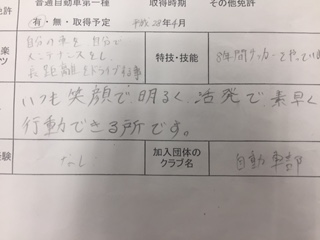 免許
普通自動車第一種
取得時期
その他免許
有・無・取得予定
平成28年4月
自分の車を自分で
メンテナンスをし、
長距離をドライブする事
特技・技能
8年間サッカーをやってい
いつも笑顔で明るく、活発で素早く
行動できる所です。
なし
加入団体の
クラブ名
自動車部